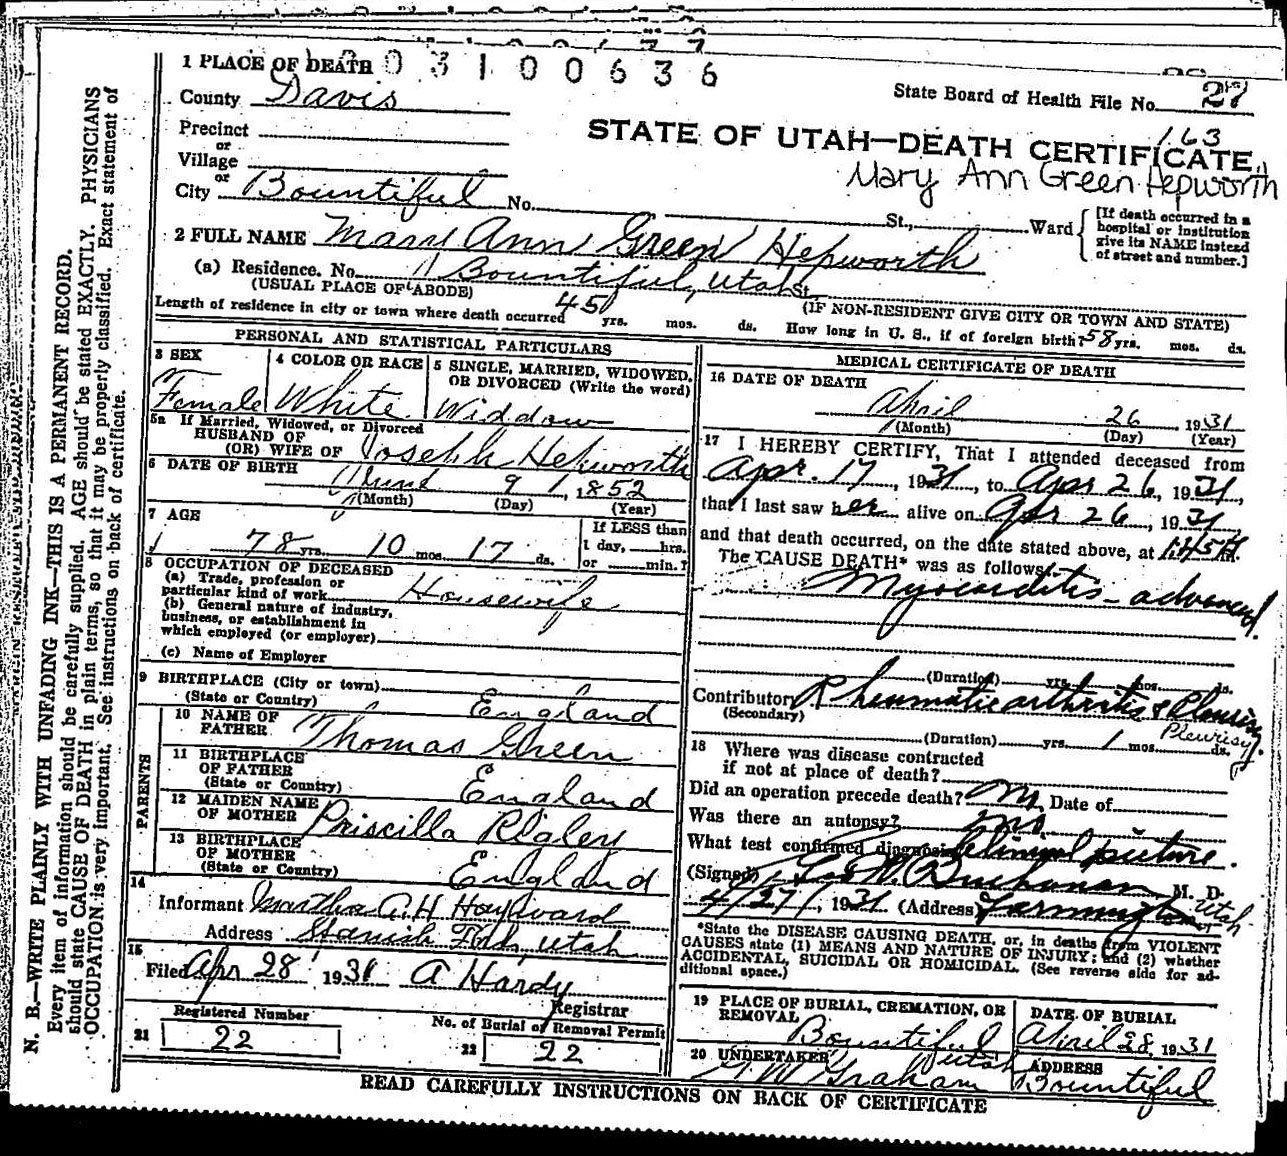 1 PLACE OF DEATH
0 3 1 0 0 6 3 6
County Davis
State Board of Health File No. 27
Precinct
or
Village
or
City Bountiful No. St., Ward
STATE OF UTAH—DEATH CERTIFICATE
163
Mary Ann Green Hepworth
[If death occurred in a
hospital or institution
give its NAME instead
of street and number.]
2 FULL NAME Mary Ann Green Hepworth
(a) Residence. No. Bountiful, Utah St.
(USUAL PLACE OF ABODE)
(IF NON-RESIDENT GIVE CITY OR TOWN AND STATE)
Length of residence in city or town where death occurred 45 yrs. mos. ds. How long in U. S., if of foreign birth? 58 yrs. mos. ds.
PERSONAL AND STATISTICAL PARTICULARS
3 SEX
Female
4 COLOR OR RACE
White
5 SINGLE, MARRIED, WIDOWED,
OR DIVORCED (Write the word)
Widdow
5a If Married, Widowed, or Divorced
HUSBAND OF
(OR) WIFE OF Joseph Hepworth
6 DATE OF BIRTH
June 9, 1852
(Month) (Day) (Year)
7 AGE
78 yrs. 10 mos. 17 ds.
If LESS than
1 day, hrs.
or min.?
8 OCCUPATION OF DECEASED
(a) Trade, profession or
particular kind of work Housewife
(b) General nature of industry,
business, or establishment in
which employed (or employer)
(c) Name of Employer
9 BIRTHPLACE (City or town)
(State or Country) England
PARENTS
10 NAME OF
FATHER Thomas Green
11 BIRTHPLACE
OF FATHER
(State or Country) England
12 MAIDEN NAME
OF MOTHER Priscilla Rigley
13 BIRTHPLACE
OF MOTHER
(State or Country) England
14
Informant Martha A. H. Hayward
Address Spanish Fork, Utah
15
Filed Apr 28 1931 A Hardy
Registrar
Registered Number
21 22
No. of Burial or Removal Permit
22 22
MEDICAL CERTIFICATE OF DEATH
16 DATE OF DEATH
April 26 1931
(Month) (Day) (Year)
17 I HEREBY CERTIFY, That I attended deceased from
Apr. 17, 1931, to Apr 26, 1931,
that I last saw her alive on Apr 26, 1931,
and that death occurred, on the date stated above, at 1:45
The CAUSE DEATH* was as follows:
Myocarditis - advanced.
(Duration) yrs. mos. ds.
Contributory Rheumatic arthritis & Pleurisy
(Secondary)
Pleurisy
(Duration) yrs. 1 mos. ds.
18 Where was disease contracted
if not at place of death?
Did an operation precede death? no. Date of
Was there an autopsy? no.
What test confirmed diagnosis Clinical picture.
(Signed) Geo W. Buchanan M. D.
4/27/, 1931 (Address) Farmington Utah
*State the DISEASE CAUSING DEATH, or, in deaths from VIOLENT
CAUSES state (1) MEANS AND NATURE OF INJURY; and (2) whether
ACCIDENTAL, SUICIDAL OR HOMICIDAL. (See reverse side for ad-
ditional space.)
19 PLACE OF BURIAL, CREMATION, OR
REMOVAL
Bountiful Utah
DATE OF BURIAL
April 28, 1931
20 UNDERTAKER
Graham
ADDRESS
Bountiful
READ CAREFULLY INSTRUCTIONS ON BACK OF CERTIFICATE
N. B.—WRITE PLAINLY WITH UNFADING INK—THIS IS A PERMANENT RECORD.
Every item of information should be carefully supplied. AGE should be stated EXACTLY. PHYSICIANS
should state CAUSE OF DEATH in plain terms, so that it may be properly classified. Exact statement of
OCCUPATION is very important. See instructions on back of certificate.